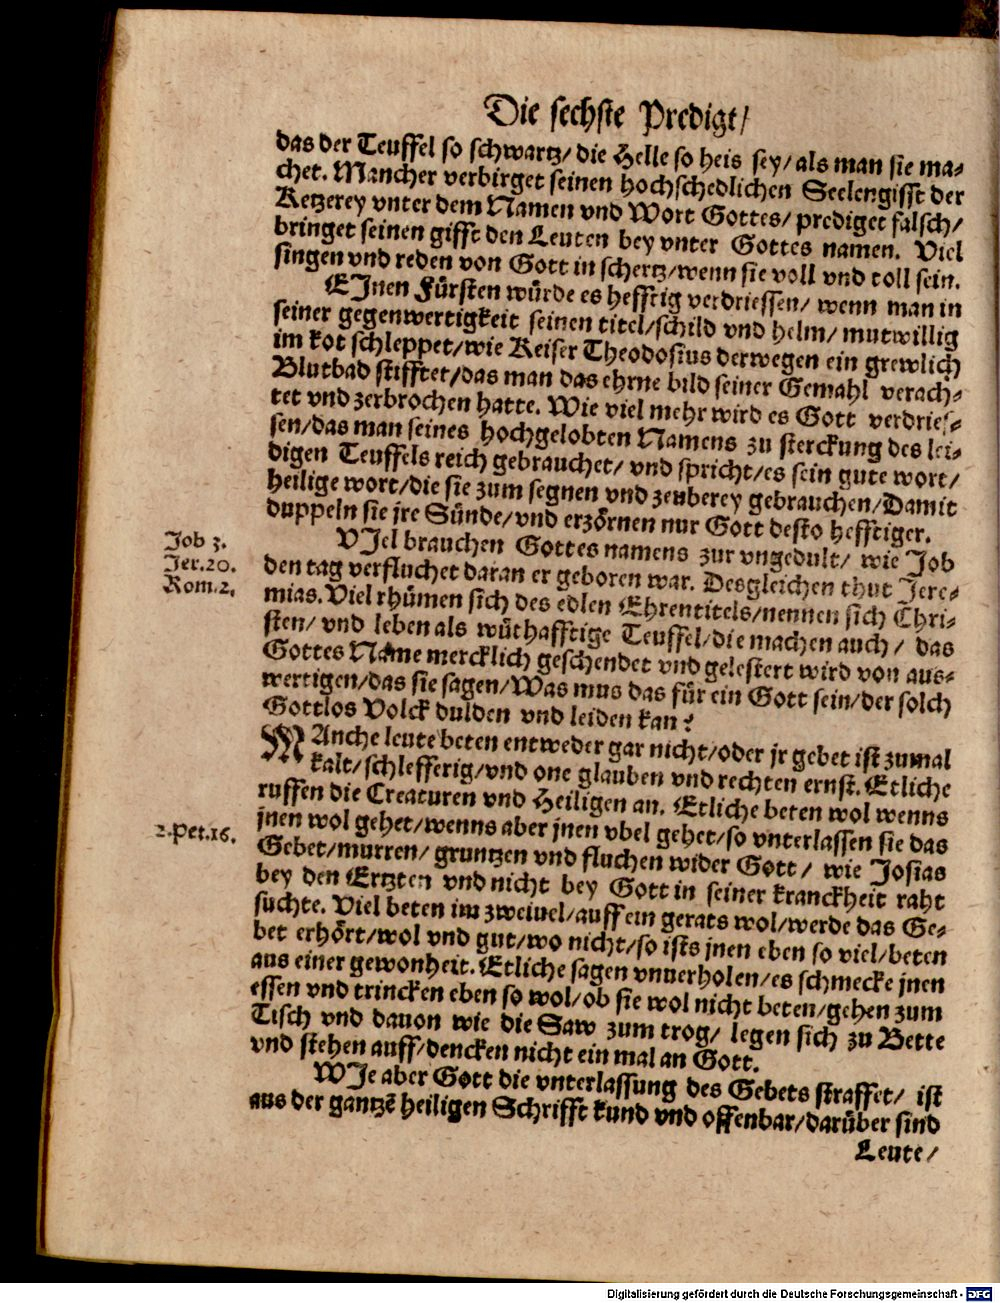 Die sechste Predigt/
das der Teuffel so schwartz/ die Helle so heis sey/ als man sie ma-
chet. Mancher verbirget seinen hochschedlichen Seelengifft der
Ketzerey vnter dem Namen vnd Wort Gottes/ prediget falsch/
bringet seinen gifft den Leuten bey vnter Gottes namen. Viel
singen vnd reden von Gott in schertz/ wenn sie voll vnd toll sein.
EJnen Fürsten würde es hefftig verdriessen/ wenn man in
seiner gegenwertigkeit seinen titel/ schild vnd helm/ mutwillig
im kot schleppet/ wie Keiser Theodosius derwegen ein grewlich
Blutbad stifftet/ das man das ehrne bild seiner Gemahl verach-
tet vnd zerbrochen hatte. Wie viel mehr wird es Gott verdries-
sen/ das man seines hochgelobten Namens zu sterckung des lei-
digen Teuffels reich gebrauchet/ vnd spricht/ es sein gute wort/
heilige wort/ die sie zum segnen vnd zeuberey gebrauchen/ Damit
duppeln sie jre Sünde/ vnd erzörnen nur Gott desto hefftiger.
VJel brauchen Gottes namens zur vngedult/ wie Job
Job 3.
den tag verfluchet daran er geboren war. Desgleichen thut Jere-
Jer. 20.
mias. Viel rhümen sich des edlen Ehrentitels/ nennen sich Chri-
Rom. 2.
sten/ vnd leben als wüthafftige Teuffel/ die machen auch/ das
Gottes Name mercklich geschendet vnd gelestert wird von aus-
wertigen/ das sie sagen/ Was mus das für ein Gott sein/ der solch
Gottlos Volck dulden vnd leiden kan?
MAnche leute beten entweder gar nicht/ oder jr gebet ist zumal
kalt/ schlefferig/ vnd one glauben vnd rechten ernst. Etliche
ruffen die Creaturen vnd Heiligen an. Etliche beten wol wenns
jnen wol gehet/ wenns aber jnen vbel gehet/ so vnterlassen sie das
2. Pet. 16.
Gebet/ murren/ gruntzen vnd fluchen wider Gott/ wie Josias
bey den Ertzten vnd nicht bey Gott in seiner kranckheit raht
suchte. Viel beten im zweiuel/ auff ein gerats wol/ werde das Ge-
bet erhört/ wol vnd gut/ wo nicht/ so ists jnen eben so viel/ beten
aus einer gewonheit. Etliche sagen vnuerholen/ es schmecke jnen
essen vnd trincken eben so wol/ ob sie wol nicht beten/ gehen zum
Tisch vnd dauon wie die Saw zum trog/ legen sich zu Bette
vnd stehen auff/ dencken nicht ein mal an Gott.
WJe aber Gott die vnterlassung des Gebets straffet/ ist
aus der gantzē heiligen Schrifft kund vnd offenbar/ darüber sind
Leute/
Digitalisierung gefördert durch die Deutsche Forschungsgemeinschaft - DFG